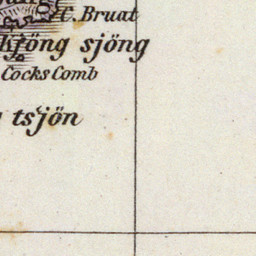 C. Bruat
kjöng sjöng
Cocks Comb
tsjön